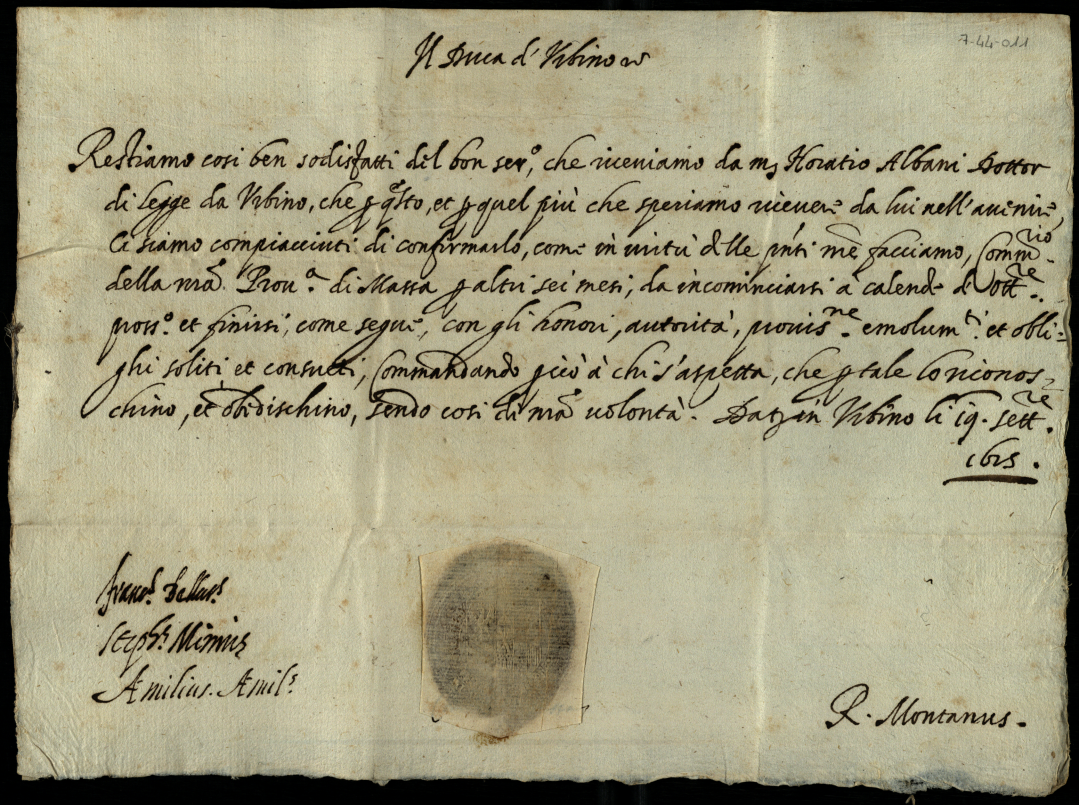 7-44-011
Il Duca d'Vrbino
Restiamo cosi ben sodisfatti del bon ser.º, che riceviamo da mꝫ Horatio Albani Dottor
di legge da Vrbino, che ꝑ q̃sto, et ꝑ quel più che speriamo ricevere da lui nell'avenire,
Ci siamo compiacciuti di confirmarlo, come in virtù delle pñti nr̃e facciamo, Comm.rio
della nrã. Prou.ª di Massa ꝑ altri sei mesi, da incominciarsi à calende d'Ott.re
pross.º et finirsi, come segue, con gli honori, autorità, provis.ne emolum.ti et obli=
ghi soliti et consueti, Commandando ꝑciò à chi s'aspetta, che ꝑ tale lo riconos=
chino, et obedischino, sendo cosi di nrã volontà. Datꝫ in Vrbino li 19. Sett.re
1615.
Stepħ.s
Æmilius. Æmil.s
R. Montanus.